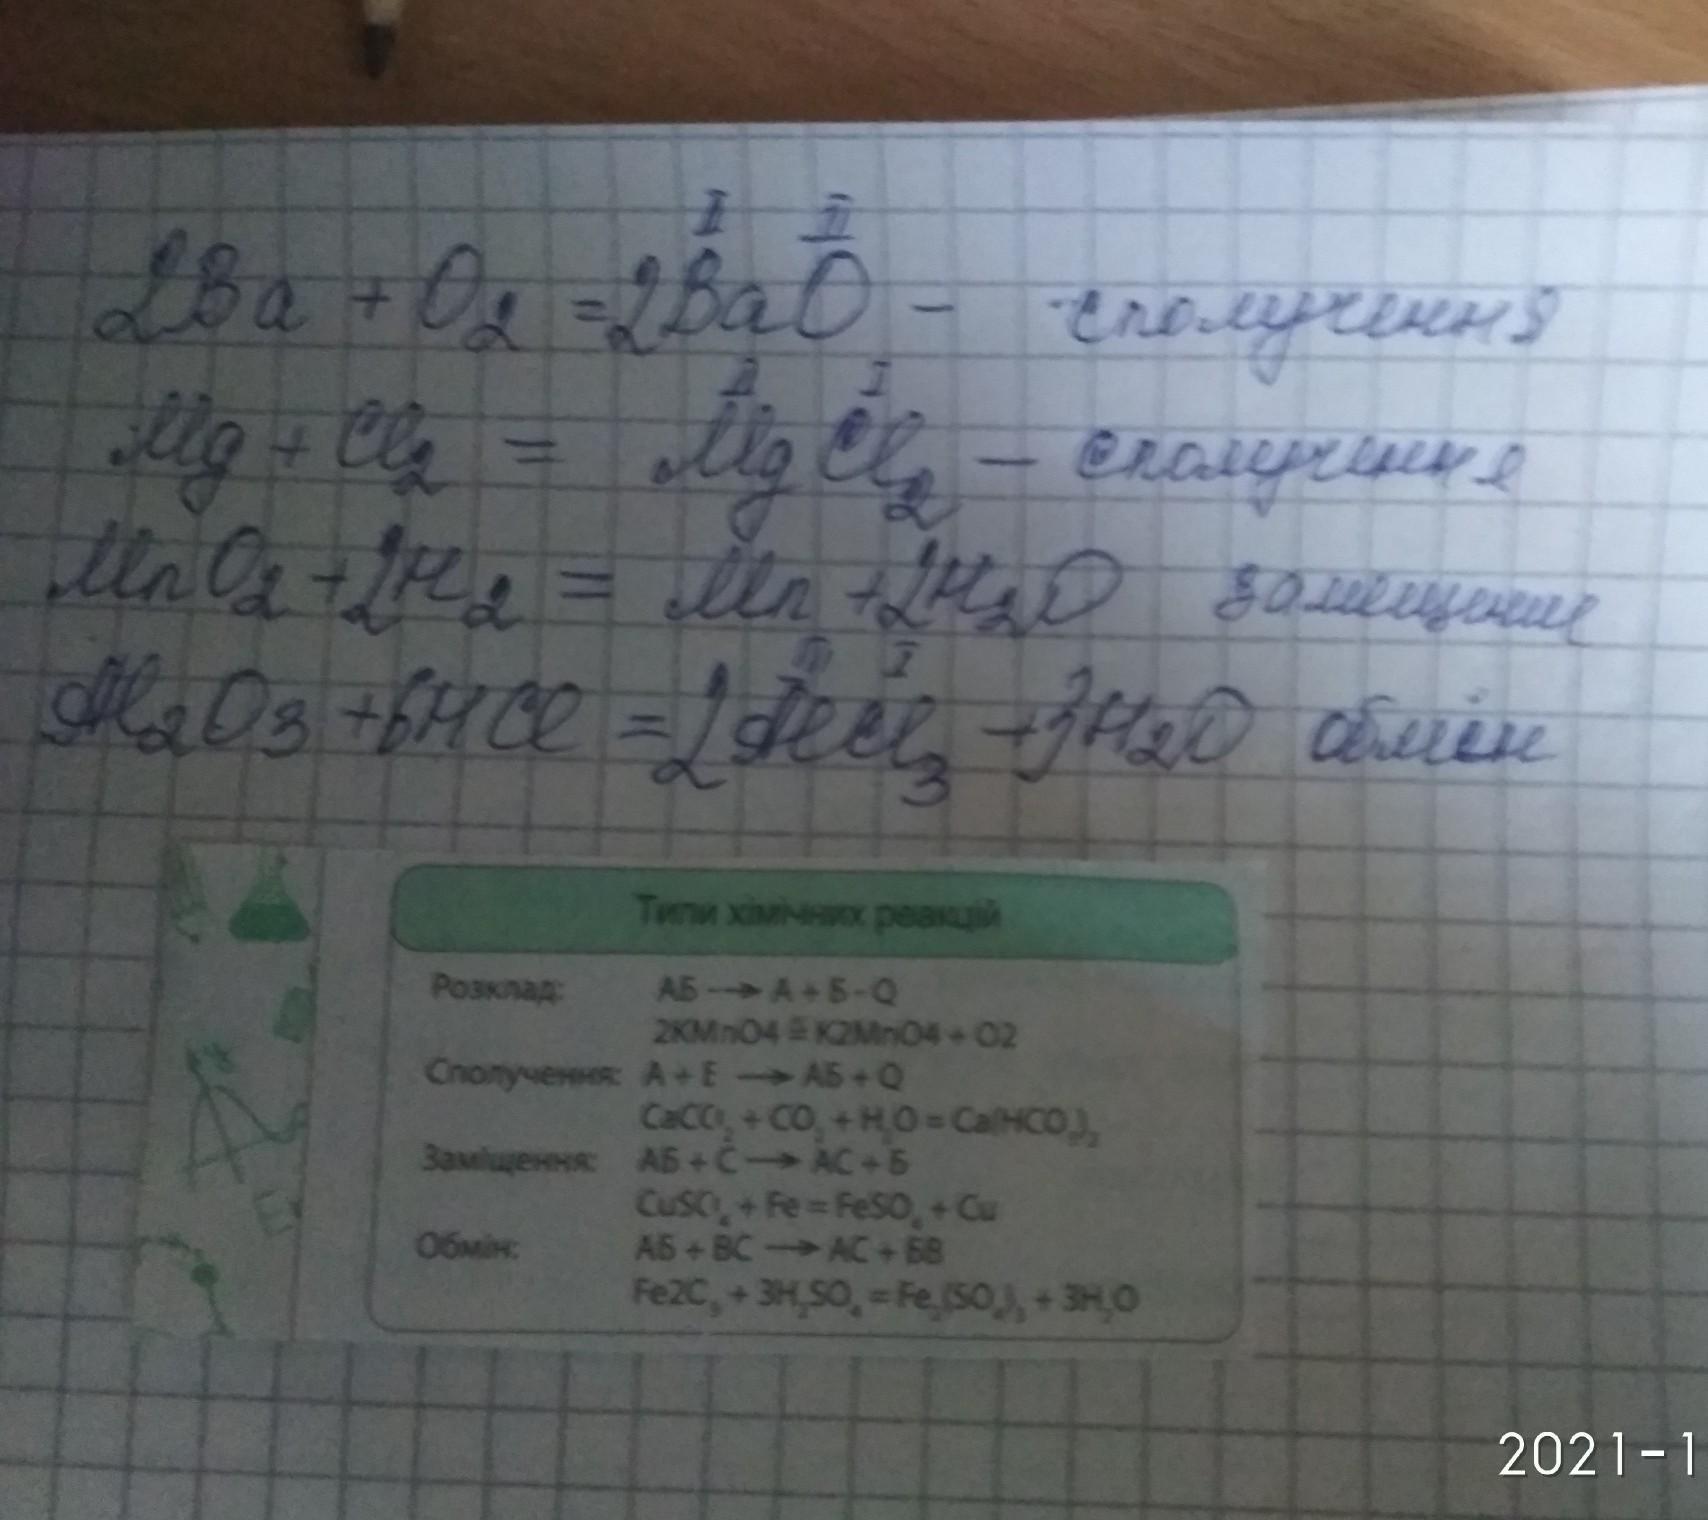 2Ba + O2 = 2BaO - сполучення
II II
Mg + Cl2 = MgCl2 - сполучення
II I
MnO2 + 2H2 = Mn + 2H2O замещение
Al2O3 + 6HCl = 2AlCl3 + 3H2O обмін
III I
Типи хімічних реакцій
Розклад: АБ → А + Б - Q
2KMnO4 = K2MnO4 + O2
Сполучення: А + Б → АБ + Q
CaCO2 + CO2 + H2O = Ca(HCO3)2
Заміщення: АБ + С → АС + Б
CuSO4 + Fe = FeSO4 + Cu
Обмін: АБ + ВС → АС + БВ
Fe2C3 + 3H2SO4 = Fe2(SO4)3 + 3H2O
2021-1